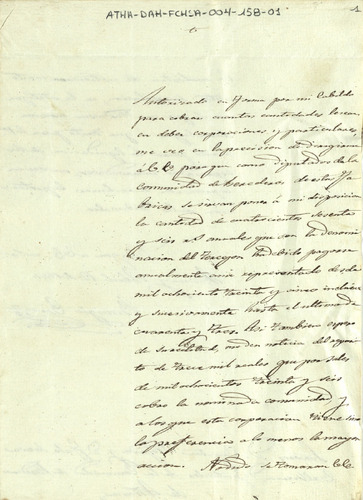 ATHA-DAH-FCHSA-004-158-01
1
Autorizado en forma por mi Cabildo
para cobrar cuantas cantidades le sean
en deber corporaciones y particulares,
me veo en la precision de dirigirme
á VV. para que como Diputados de la
comunidad de herederos de estas Fa
bricas se sirvan poner á mi disposicion
la cantidad de cuatrocientos sesenta
y seis rs anuales que con la denomi
nacion del han debido pagarse
anualmente á mi representado desde
mil ochocientos treinta y cinco inclusive
y sucesivamente hasta el ultimo de
cuarenta y tres. Asi tambien espero
de su me den noticia del
de trece mil reales que por sales
de mil ochocientos treinta y seis
cobró la nominada comunidad, y
a los que esta corporacion tiene sino
la preferencia a lo menos la mayor
accion. No dudo se tomaran VV.